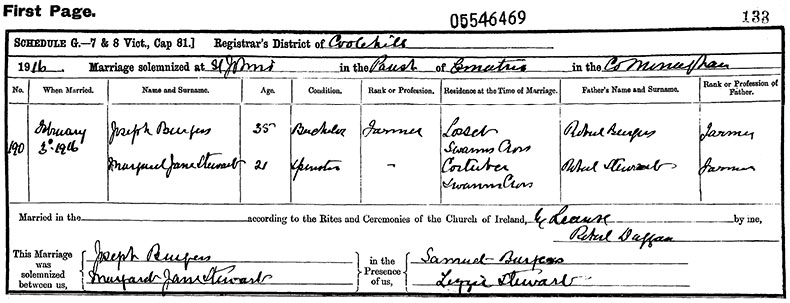 First Page.
05546469
133
SCHEDULE G.—7 & 8 Vict., Cap 81.] Registrar's District of Cootehill
1916. Marriage solemnized at St Johns in the Parish of Ematris in the Co Monaghan
No. When Married. Name and Surname. Age. Condition. Rank or Profession. Residence at the Time of Marriage. Father's Name and Surname. Rank or Profession of Father.
190 February 3d 1916 Joseph Burgess 35 Bachelor Farmer Losset Swanns Cross Robert Burgess Farmer
Margaret Jane Stewart 21 Spinster - Corlubber Swanns Cross Robert Stewart Farmer
Married in the according to the Rites and Ceremonies of the Church of Ireland, by License by me,
Robert
This Marriage was solemnized between us, Joseph Burgess in the Presence of us, Samuel Burgess
Margaret Jane Stewart Lizzie Stewart